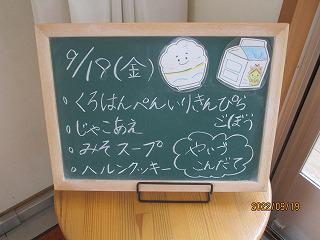 9/19(金)
・くろはんぺんいりきんぴら
ごぼう
・じゃこあえ
・みそスープ
・ヘルンクッキー
やいづ
こんだて
2022/09/19